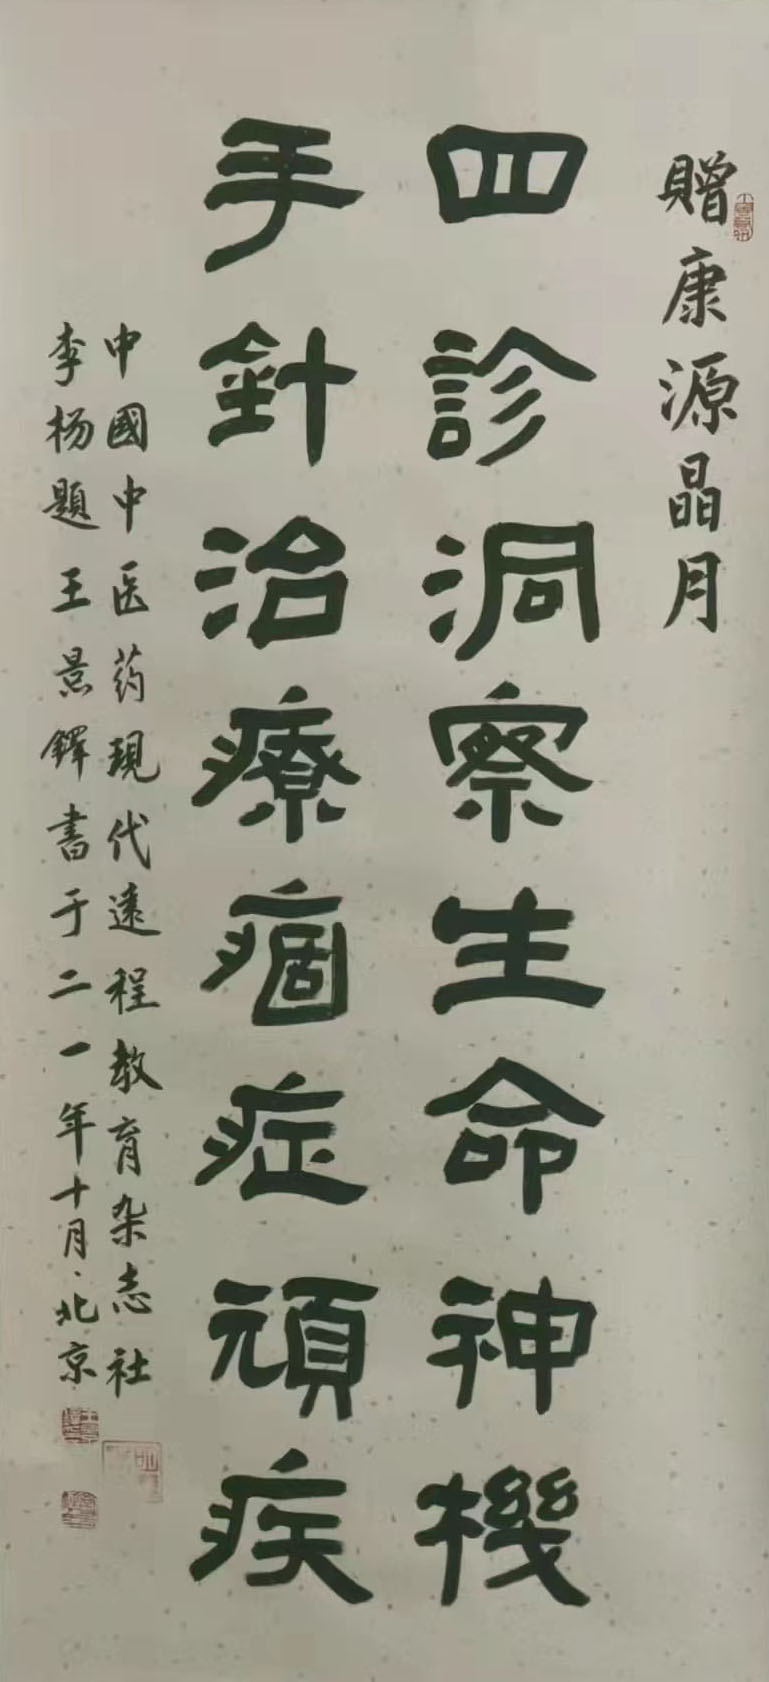 贈康源晶月
四診洞察生命神機
手針治療痼症頑疾
中國中医药現代遠程教育杂志社
李杨題王景鐸書于二一年十月、北京